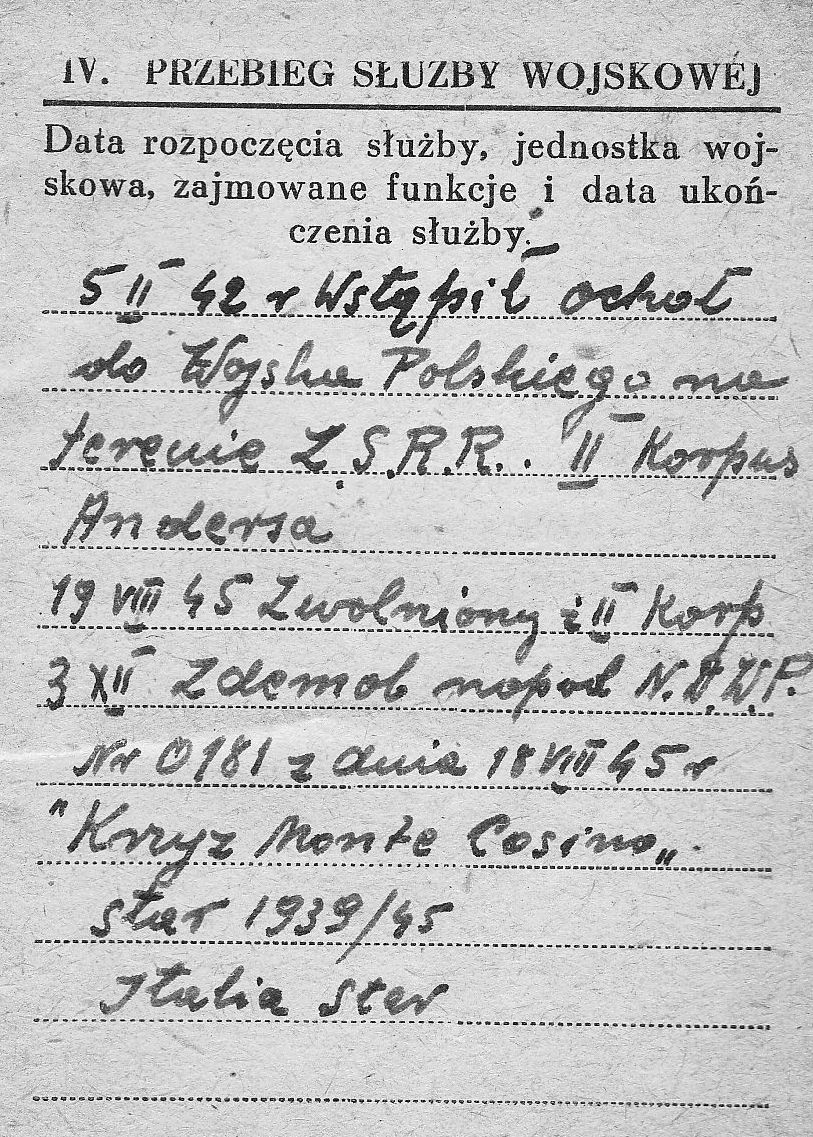 IV. PRZEBIEG SŁUŻBY WOJSKOWEJ
Data rozpoczęcia służby, jednostka woj-
skowa, zajmowane funkcje i data ukoń-
czenia służby.
5 II 42 r Wstąpił ochoł
do Wojska Polskiego na
terenie Z.S.R.R. II Korpus
Andersa
19 VIII 45 Zwolniony z II Korp
3 XII Zdemob na pod N.D.W.P.
Nr 0181 z dnia 18 VIII 45 r
"Krzyz Monte Cosino„
star 1939/45
Italia Star